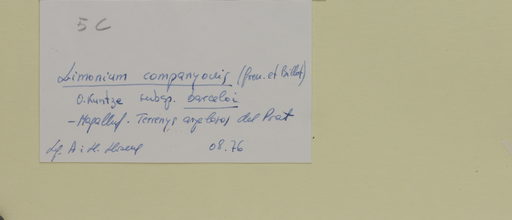 5C
Limonium companyonis (Gren. et Billot)
O. Kuntze subsp. barceloi
- Magalluf. Terrenys argilosos del Prat
Lg. A. i Ll.
08.76